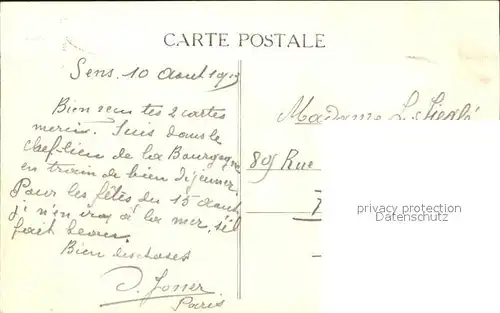 CARTE POSTALE
Sens. 10 Aout 19
Bien reçu tes 2 cartes
merci. Suis dans le
chef-lieu de la Bourgogne
en train de bien déjeuner.
Pour les fêtes du 15 Aout
j'irai à la mer, s'il
fait beau.
Bien des choses
Joner
Paris
Madame L.
89 Rue
privacy protection
Datenschutz